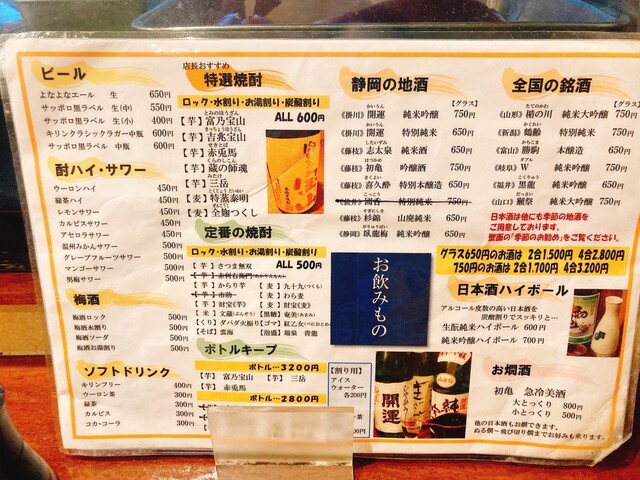 ビール
よなよなエール 生 650円
サッポロ黒ラベル 生(中) 550円
サッポロ黒ラベル 生(小) 400円
キリンクラシックラガー中瓶 600円
サッポロ黒ラベル 中瓶 600円
酎ハイ・サワー
ウーロンハイ 450円
緑茶ハイ 450円
レモンサワー 450円
カルピスサワー 450円
アセロラサワー 450円
温州みかんサワー 500円
グレープフルーツサワー 500円
マンゴーサワー 500円
男梅サワー 500円
梅酒
梅酒ロック 500円
梅酒水割り 500円
梅酒ソーダ 500円
梅酒お湯割り 500円
ソフトドリンク
キリンフリー 400円
ウーロン茶 300円
緑茶 300円
カルピス 300円
コカ・コーラ 300円
店長おすすめ
特選焼酎
ロック・水割り・お湯割り・炭酸割り
ALL 600円
とみのほうざん
【芋】富乃宝山
きっちょうほうざん
【芋】吉兆宝山
せきとば
【芋】赤兎馬
くらのしこん
【芋】蔵の師魂
みたけ
【芋】三岳
とくじょう たいめい
【麦】特蒸泰明
【麦】全麹つくし
定番の焼酎
ロック・水割り・お湯割り・炭酸割り
【芋】さつま無双 ALL 500円
【芋】赤利右衛門
【芋】からり芋 【麦】九十九(つくも)
【芋】市助 【麦】わら麦
【芋】財宝《芋》 【麦】財宝《麦》
【米】文蔵(ぶんぞう) 【黒糖】奄美(あまみ)
【くり】ダバダ火振り 【ゴマ】紅乙女(べにおとめ)
【そば】雲海 【泡盛】瑞泉 青龍
ボトルキープ
ボトル…3200円
【芋】富乃宝山 【芋】三岳
【芋】赤兎馬
ボトル…2800円
【割り用】
アイス
ウォーター
各200円
静岡の地酒
【グラス】
かいうん
《掛川》開運 純米吟醸 750円
かいうん
《掛川》開運 特別純米 650円
しだいずみ
《藤枝》志太泉 純米酒 650円
はつかめ
《藤枝》初亀 吟醸酒 750円
きくよい
《藤枝》喜久酔 特別本醸造 650円
こっこう
《袋井》國香 特別純米 750円
すぎにしき
《藤枝》杉錦 山廃純米 650円
《静岡》臥龍梅 純米吟醸 750円
お飲みもの
全国の銘酒
【グラス】
たてのかわ
《山形》楯の川 純米大吟醸 750円
かくれい
《新潟》鶴齢 特別純米 750円
かちこま
《富山》勝駒 本醸造 650円
ダブル
《岐阜》W 純米吟醸 750円
こくりゅう
《福井》黒龍 純米吟醸 750円
だっさい
《山口》獺祭 純米大吟醸 750円
日本酒は他にも季節の地酒を
ご用意しております。
壁面の「季節のお勧め」をご覧ください。
グラス650円のお酒は 2合1,500円 4合2,800円
750円のお酒は 2合1,700円 4合3,200円
日本酒ハイボール
アルコール度数の高い日本酒を
炭酸割りでスッキリと…
生酛純米ハイボール 600円
純米吟醸ハイボール 700円
お燗酒
初亀 急冷美酒
大とっくり 800円
小とっくり 500円
他の日本酒もお燗できます。
ぬる燗～飛び切り燗までお好みも承ります。
開運